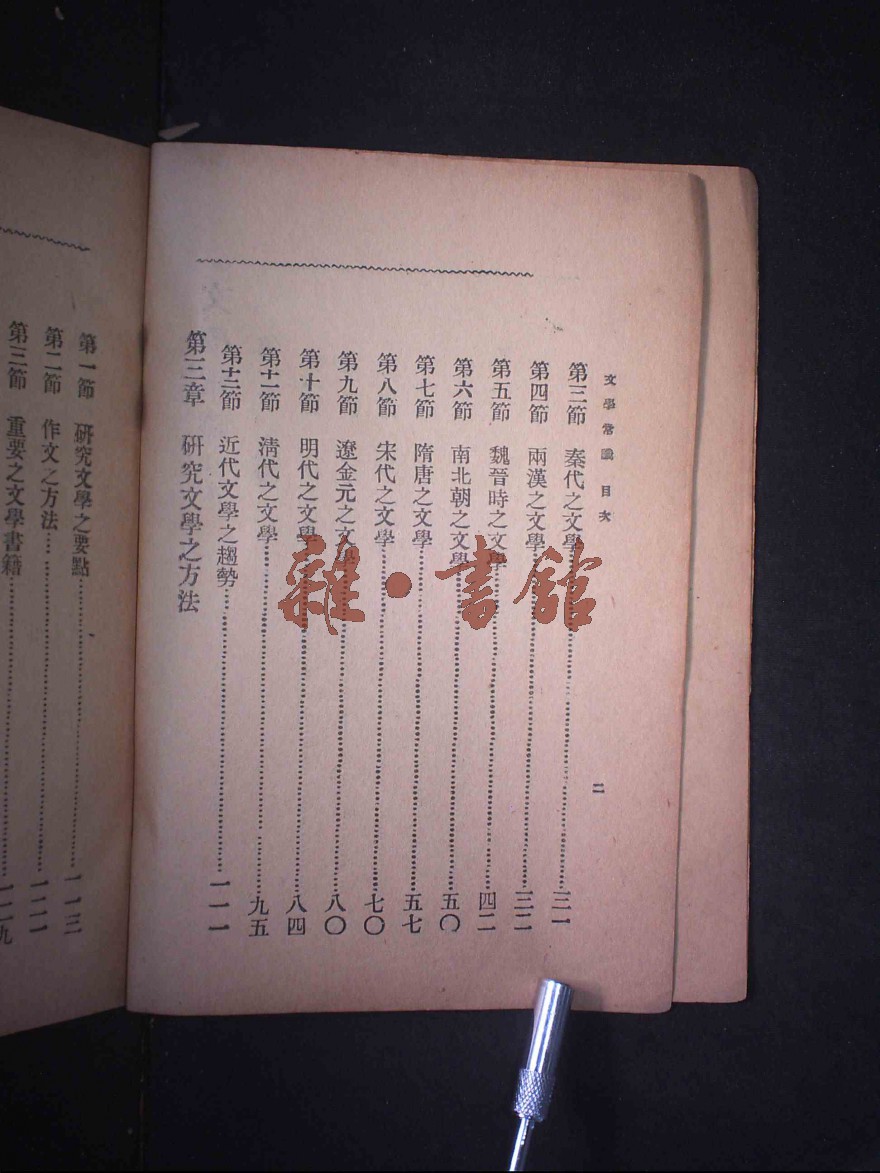 文學常識 目次 二
第三節 秦代之文學……三一
第四節 兩漢之文學……三二
第五節 魏晉時之文學……四二
第六節 南北朝之文學……五〇
第七節 隋唐之文學……五七
第八節 宋代之文學……七〇
第九節 遼金元之文學……八〇
第十節 明代之文學……八四
第十一節 淸代之文學……九五
第十二節 近代文學之趨勢……一一一
第三章 研究文學之方法
第一節 研究文學之要點……一一三
第二節 作文之方法……一二一
第三節 重要之文學書籍……一二九
雜·書館